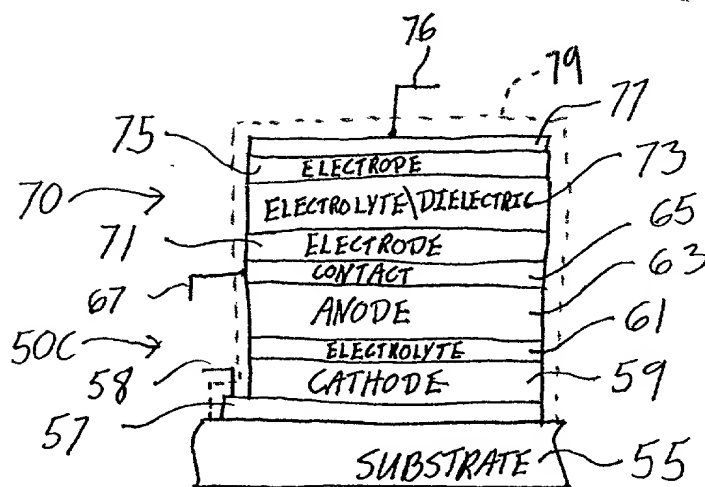 76
79
77
75
ELECTRODE
73
70
ELECTROLYTE\DIELECTRIC
71
ELECTRODE
65
CONTACT
63
67
ANODE
61
50C
ELECTROLYTE
58
CATHODE
59
57
SUBSTRATE
55